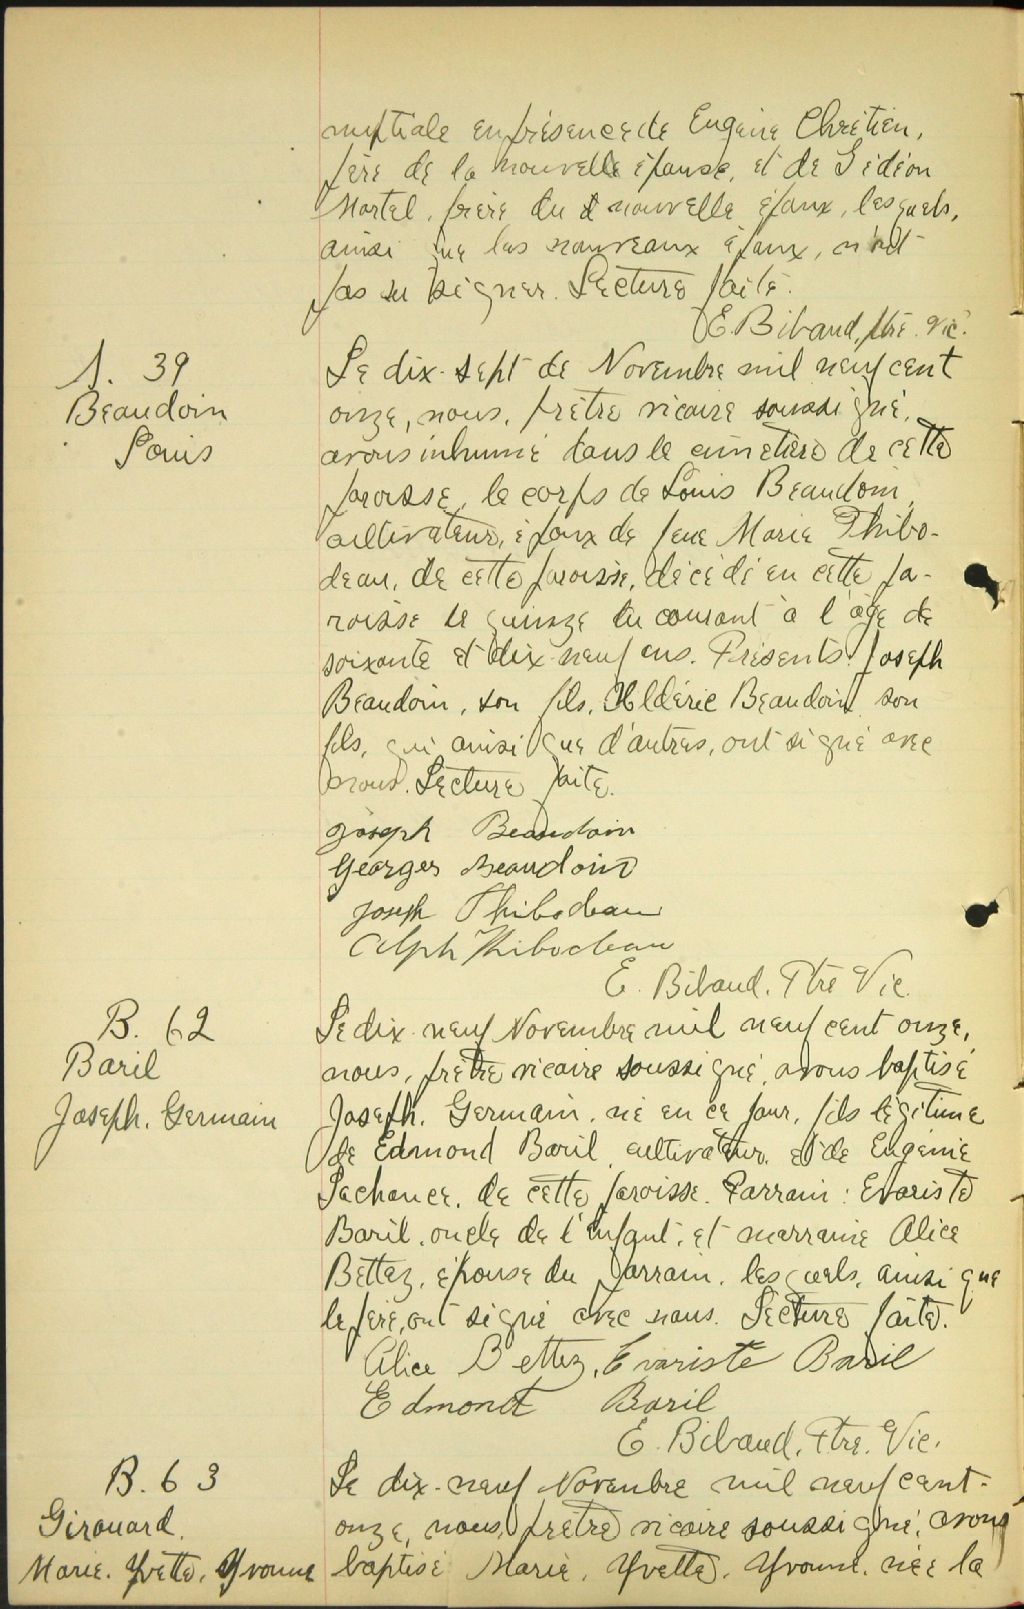 nuptiale en présence de Eugène Chrétien,
père de la nouvelle épouse, et de Gédéon
Martel, frère du nouvelle époux, lesquels,
ainsi que les nouveaux époux, n'ont
pas su signer. Lecture faite.
E. Bibaud, ptre. vic.
S. 39
Beaudoin
Louis
Le dix-sept de Novembre mil neuf cent
onze, nous, prêtre vicaire soussigné,
avons inhumé dans le cimetière de cette
paroisse, le corps de Louis Beaudoin,
cultivateur, époux de feue Marie Thibo-
deau, de cette paroisse, décédé en cette pa-
roisse le quinze du courant à l'âge de
soixante et dix-neuf ans. Présents: Joseph
Beaudoin, son fils, Uldéric Beaudoin son
fils, qui ainsi que d'autres, ont signé avec
nous. Lecture faite.
Joseph Beaudoin
Georges Beaudoin
Joseph Thibodeau
Alph Thibodeau
E. Bibaud. Ptre Vic.
B. 62
Baril
Joseph. Germain
Le dix-neuf Novembre mil neuf cent onze,
nous, prêtre vicaire soussigné, avons baptisé
Joseph. Germain, né en ce jour, fils légitime
de Edmond Baril, cultivateur, et de Eugénie
Lachance, de cette paroisse. Parrain: Evariste
Baril, oncle de l'enfant, et marraine Alice
Bettez, épouse du parrain, lesquels, ainsi que
le père, ont signé avec nous. Lecture faite.
Alice Bettez, Evariste Baril
Edmond Baril
E. Bibaud. Ptre. Vic.
B. 63
Girouard.
Marie. Yvette. Yvonne
Le dix-neuf Novembre mil neuf cent-
onze, nous, prêtre vicaire soussigné, avons
baptisé Marie, Yvette, Yvonne, née la